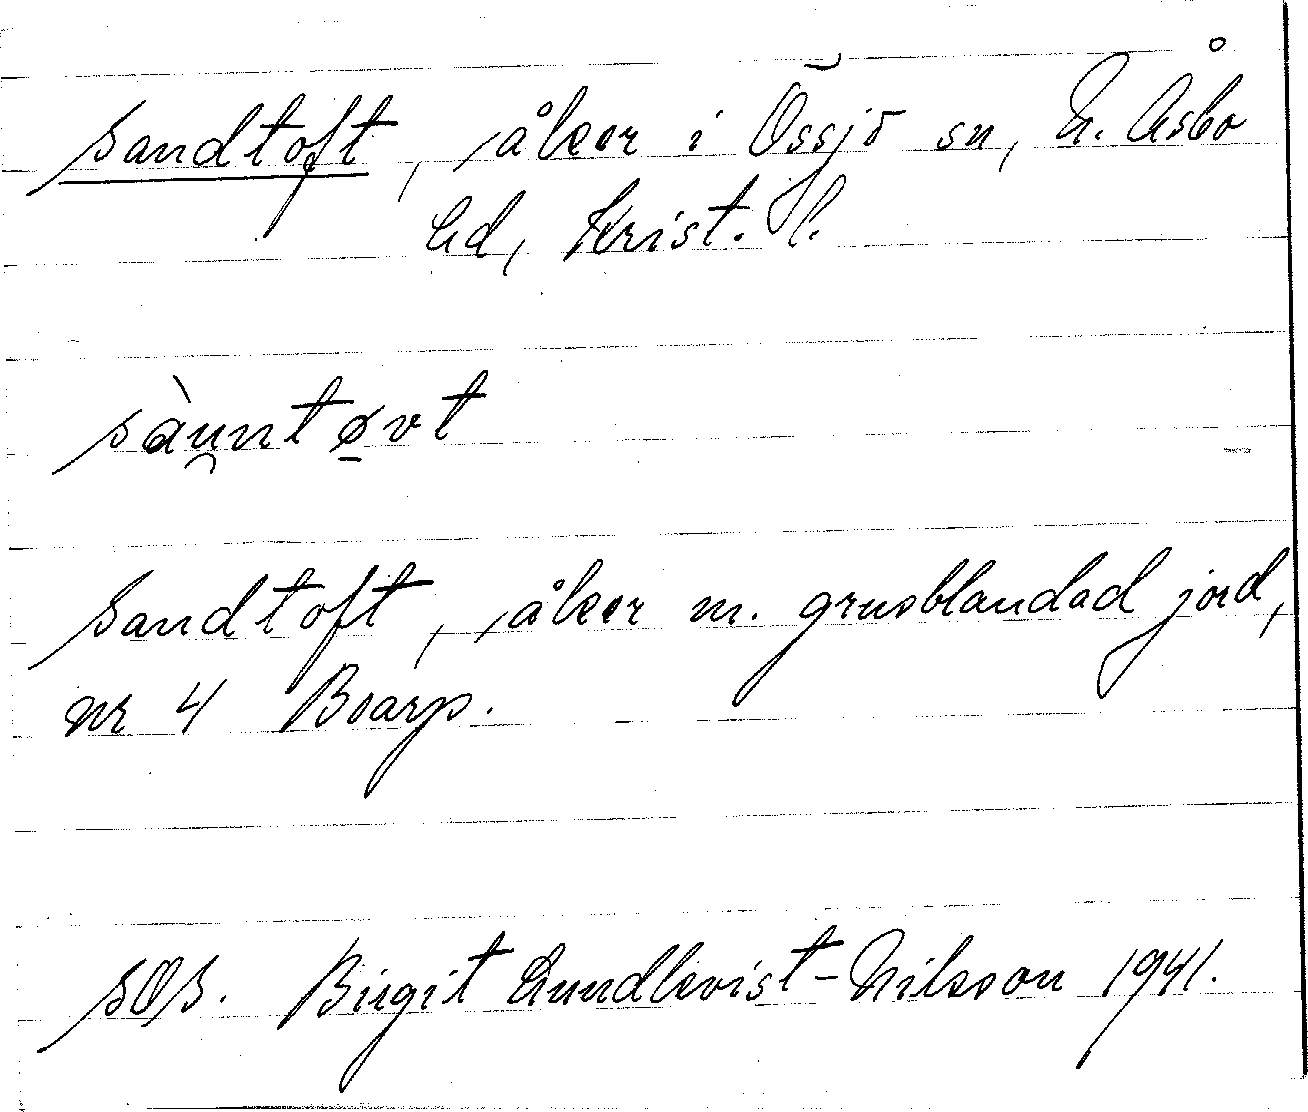 Sandtoft, åker i Össjö sn, N. Åsbo
hd, Krist. l.
sàu̯ntø̠vt
Sandtoft, åker m. grusblandad jord,
nr 4 Boarp.
SOS. Birgit Lundkvist-Nilsson 1941.